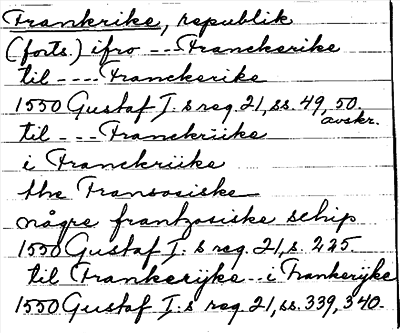 Frankrike, republik
(forts.) ifro -- Franckerike
til ---- Franckerike
1550 Gustaf I. s reg. 21, ss. 49, 50.
avskr.
til --- Franckriike
i Franckriike
the Fransosiske
någre frantzosiske schip
1550 Gustaf I. s reg. 21, s. 225.
til Frankerijke -- i Frankerijke
1550 Gustaf I. s reg. 21, ss. 339, 340.